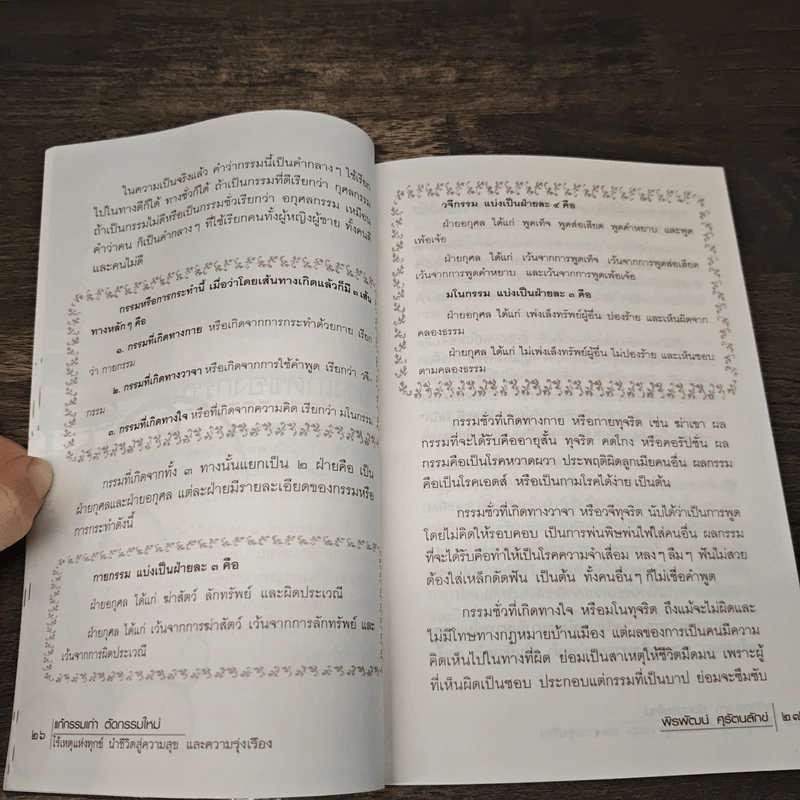 ในความเป็นจริงแล้ว คำว่ากรรมนี้เป็นคำกลางๆ ใช้เรียก
ไปในทางดีก็ได้ ทางชั่วก็ได้ ถ้าเป็นกรรมที่ดีเรียกว่า กุศลกรรม
ถ้าเป็นกรรมไม่ดีหรือเป็นกรรมชั่วเรียกว่า อกุศลกรรม เหมือน
คำว่าคน ก็เป็นคำกลางๆ ที่ใช้เรียกคนทั้งผู้หญิงผู้ชาย ทั้งคนดี
และคนไม่ดี
กรรมหรือการกระทำนี้ เมื่อว่าโดยเส้นทางเกิดแล้วก็มี ๓ เส้น
ทางหลักๆ คือ
๑. กรรมที่เกิดทางกาย หรือเกิดจากการกระทำด้วยกาย เรียก
ว่า กายกรรม
๒. กรรมที่เกิดทางวาจา หรือเกิดจากการใช้คำพูด เรียกว่า วจี-
กรรม
๓. กรรมที่เกิดทางใจ หรือที่เกิดจากความคิด เรียกว่า มโนกรรม
กรรมที่เกิดจากทั้ง ๓ ทางนั้นแยกเป็น ๒ ฝ่ายคือ เป็น
ฝ่ายกุศลและฝ่ายอกุศล แต่ละฝ่ายมีรายละเอียดของกรรมหรือ
การกระทำดังนี้
กายกรรม แบ่งเป็นฝ่ายละ ๓ คือ
ฝ่ายอกุศล ได้แก่ ฆ่าสัตว์ ลักทรัพย์ และผิดประเวณี
ฝ่ายกุศล ได้แก่ เว้นจากการฆ่าสัตว์ เว้นจากการลักทรัพย์ และ
เว้นจากการผิดประเวณี
๒๖ แก้กรรมเก่า ตัดกรรมใหม่
ไร้เหตุแห่งทุกข์ นำชีวิตสู่ความสุข และความรุ่งเรือง
วจีกรรม แบ่งเป็นฝ่ายละ ๔ คือ
ฝ่ายอกุศล ได้แก่ พูดเท็จ พูดส่อเสียด พูดคำหยาบ และพูด
เพ้อเจ้อ
ฝ่ายกุศล ได้แก่ เว้นจากการพูดเท็จ เว้นจากการพูดส่อเสียด
เว้นจากการพูดคำหยาบ และเว้นจากการพูดเพ้อเจ้อ
มโนกรรม แบ่งเป็นฝ่ายละ ๓ คือ
ฝ่ายอกุศล ได้แก่ เพ่งเล็งทรัพย์ผู้อื่น ปองร้าย และเห็นผิดจาก
คลองธรรม
ฝ่ายกุศล ได้แก่ ไม่เพ่งเล็งทรัพย์ผู้อื่น ไม่ปองร้าย และเห็นชอบ
ตามคลองธรรม
กรรมชั่วที่เกิดทางกาย หรือกายทุจริต เช่น ฆ่าเขา ผล
กรรมที่จะได้รับคืออายุสั้น ทุจริต คดโกง หรือคอรัปชั่น ผล
กรรมคือเป็นโรคหวาดผวา ประพฤติผิดลูกเมียคนอื่น ผลกรรม
คือเป็นโรคเอดส์ หรือเป็นกามโรคได้ง่าย เป็นต้น
กรรมชั่วที่เกิดทางวาจา หรือวจีทุจริต นับได้ว่าเป็นการพูด
โดยไม่คิดให้รอบคอบ เป็นการพ่นพิษพ่นไฟใส่คนอื่น ผลกรรม
ที่จะได้รับคือทำให้เป็นโรคความจำเสื่อม หลงๆ ลืมๆ ฟันไม่สวย
ต้องใส่เหล็กดัดฟัน เป็นต้น ทั้งคนอื่นๆ ก็ไม่เชื่อคำพูด
กรรมชั่วที่เกิดทางใจ หรือมโนทุจริต ถึงแม้จะไม่ผิดและ
ไม่มีโทษทางกฎหมายบ้านเมือง แต่ผลของการเป็นคนมีความ
คิดเห็นไปในทางที่ผิด ย่อมเป็นสาเหตุให้ชีวิตมืดมน เพราะผู้
ที่เห็นผิดเป็นชอบ ประกอบแต่กรรมที่เป็นบาป ย่อมจะซึมซับ
พิรพัฒน์ ศุรัตนลักข์ ๒๗